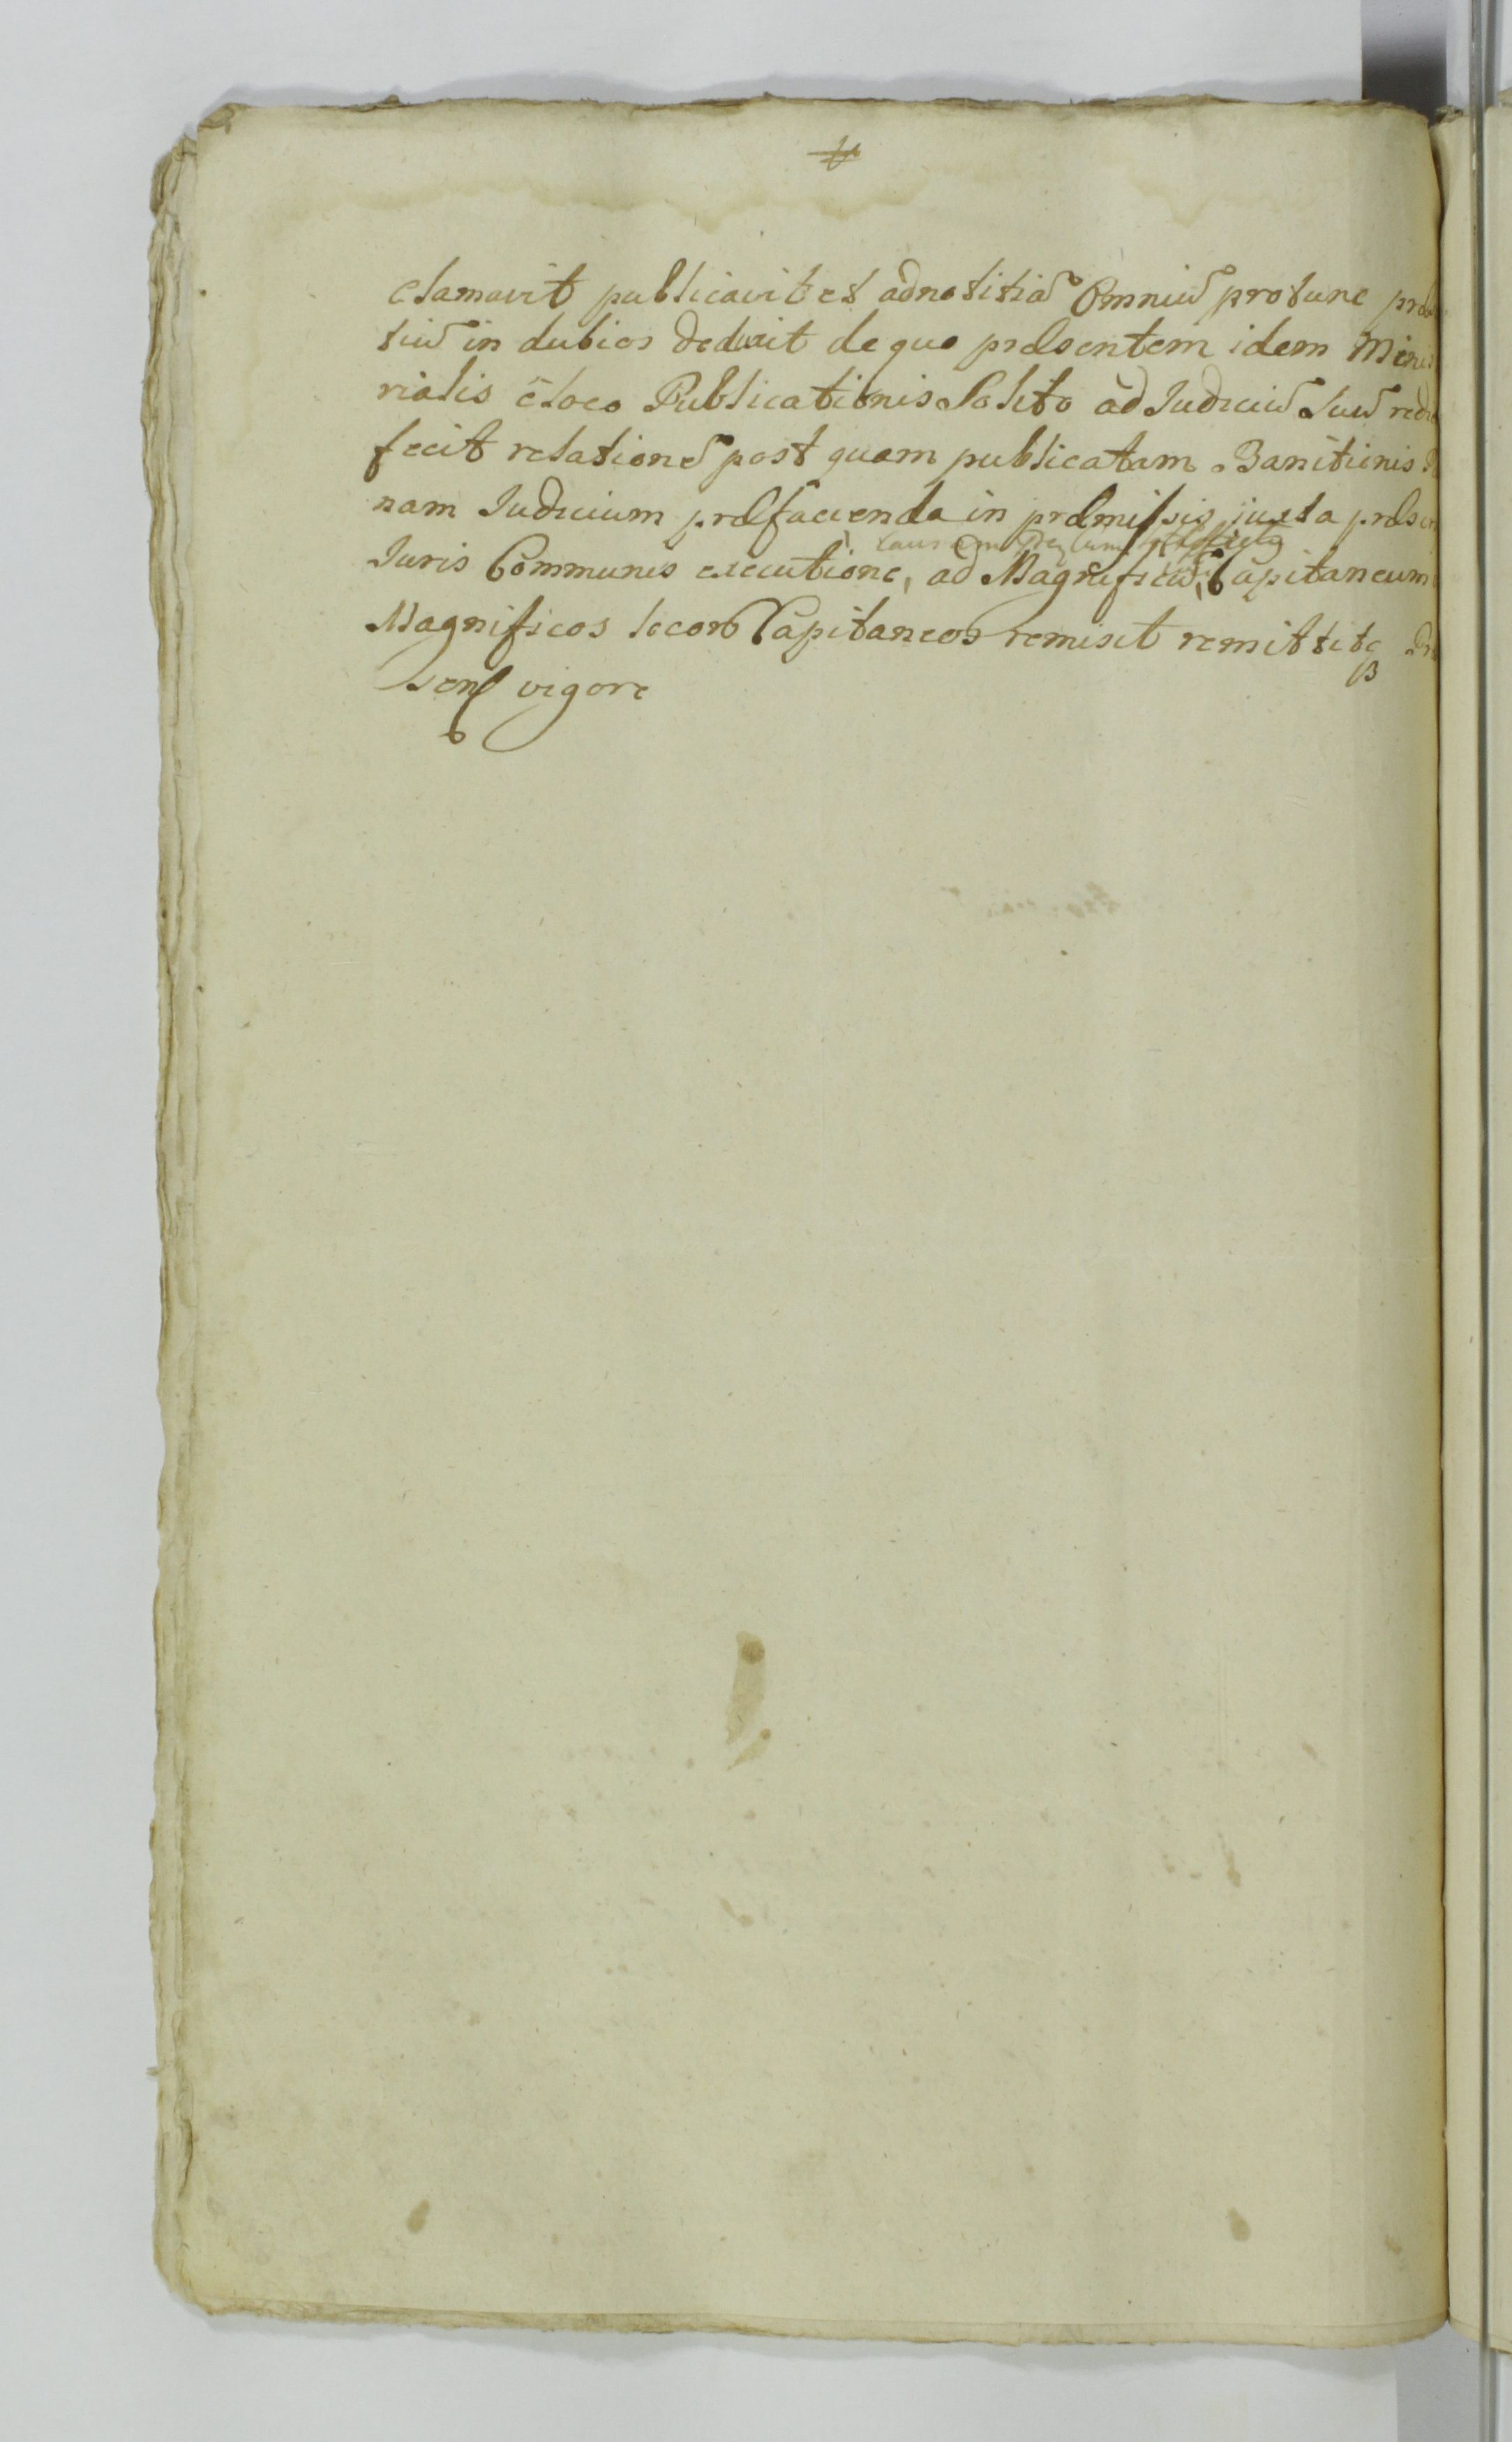 clamavit publicavit et ad notitiā Omniū protunc præ
tiū in dubies deduxit de quo præsentem idem Minis
rialis è loco Publicationis Solito ad Iudiciū suū redi
fecit relationē post quam publicatam Banitionis
nam Iudicium præ facienda in præmissis iuxta præscri
Iuris Communis executione, ad Magnificū Capitaneum
Magnificos locorō Capitaneos remisit remittitq
sens vigore